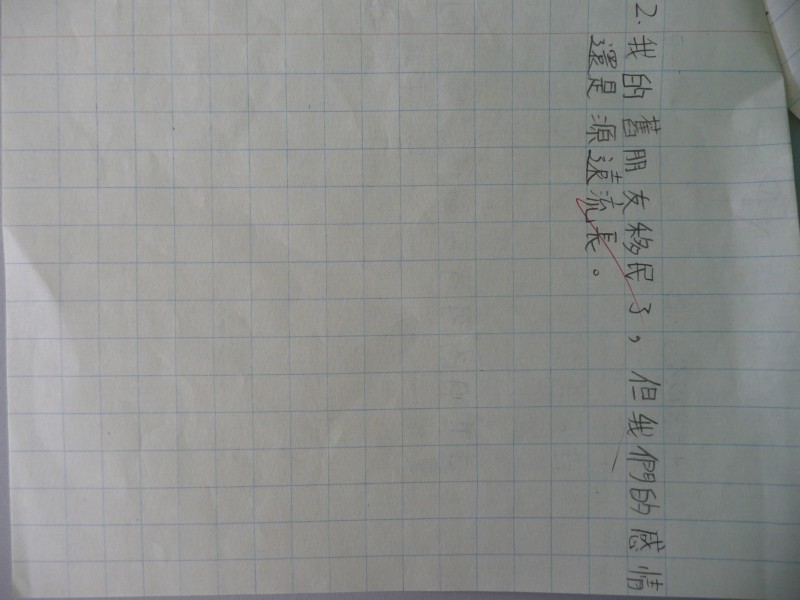 2. 我的舊朋友移民了，但我們的感情
還是源遠流長。